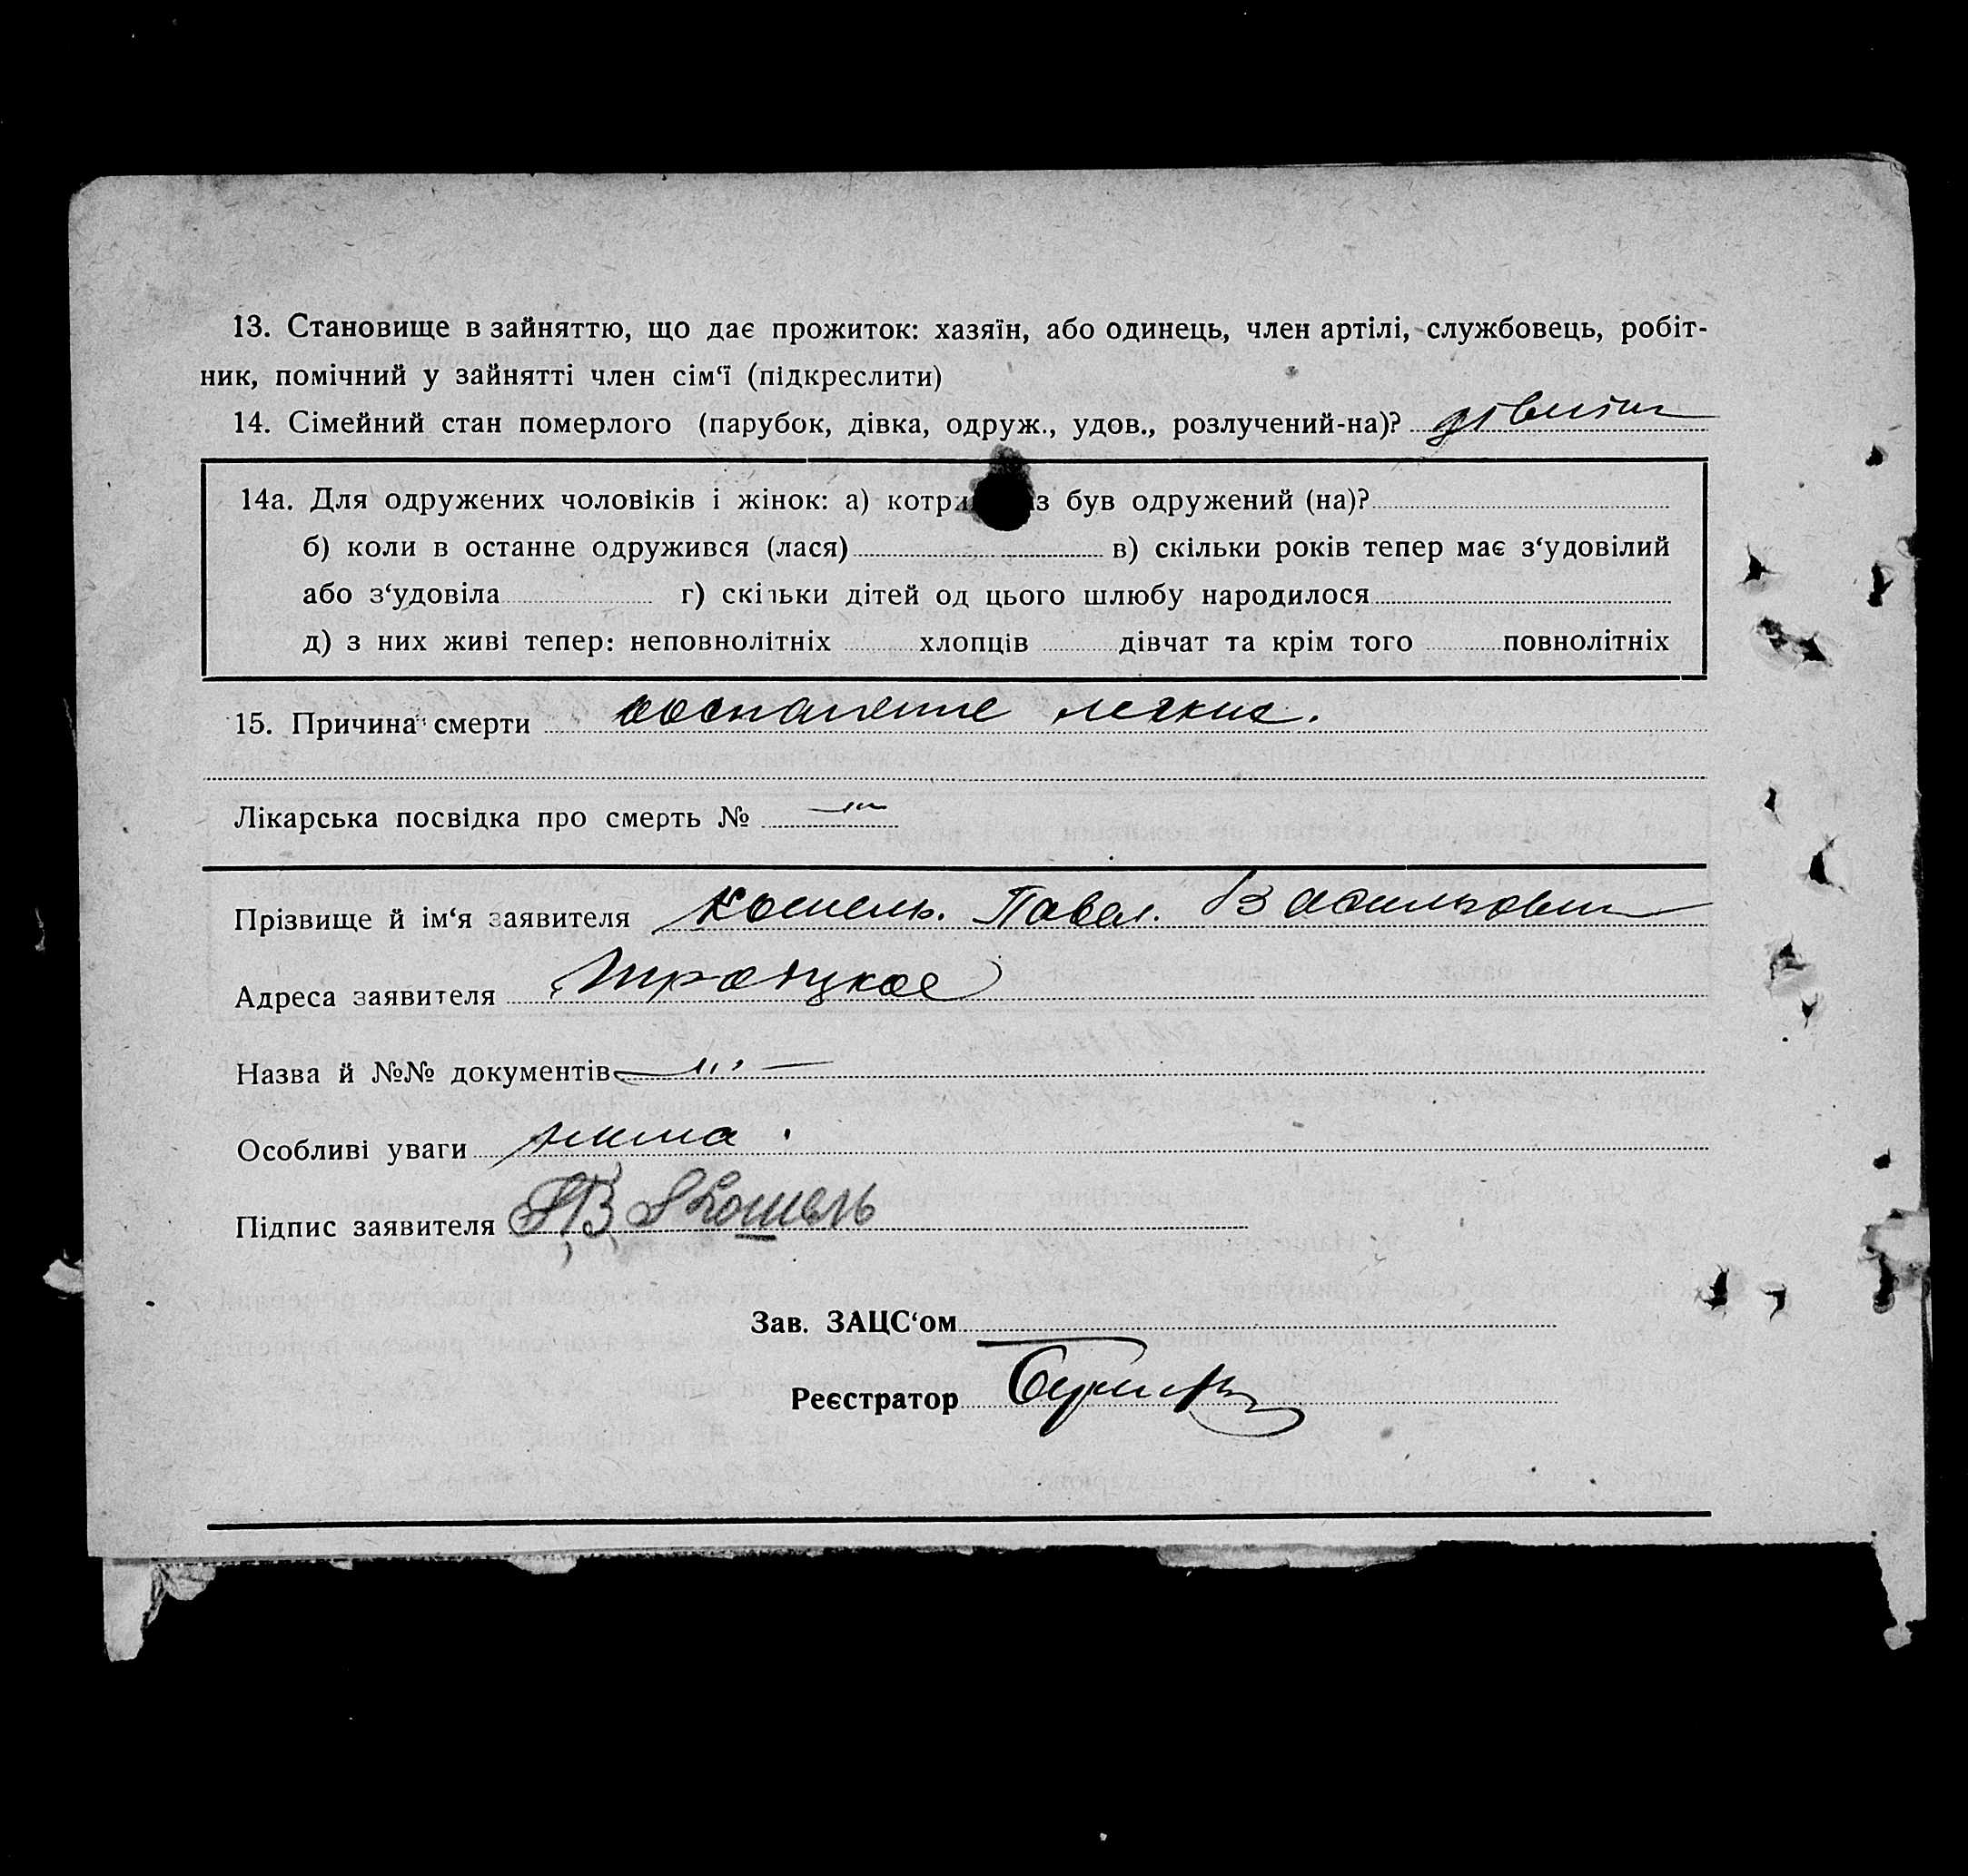 13. Становище в зайняттю, що дає прожиток: хазяїн, або одинець, член артілі, службовець, робіт-
ник, помічний у зайнятті член сім‘ї (підкреслити)
14. Сімейний стан померлого (парубок, дівка, одруж., удов., розлучений-на)?
14а. Для одружених чоловіків і жінок: а) був одружений (на)?
б) коли в останне одружився (лася) в) скільки років тепер має з‘удовілий
або з‘удовіла г) скільки дітей од цього шлюбу народилося
д) з них живі тепер: неповнолітніх хлопців дівчат та крім того повнолітніх
15. Причина смерти воспаление легких.
Лікарська посвідка про смерть №
Прізвище й ім‘я заявителя Кошель. Павел. Васильович
Адреса заявителя Троцкое
Назва й №№ документів
Особливі уваги нима.
Підпис заявителя ПВ Кошель
Зав. ЗАЦС‘ом
Реєстратор